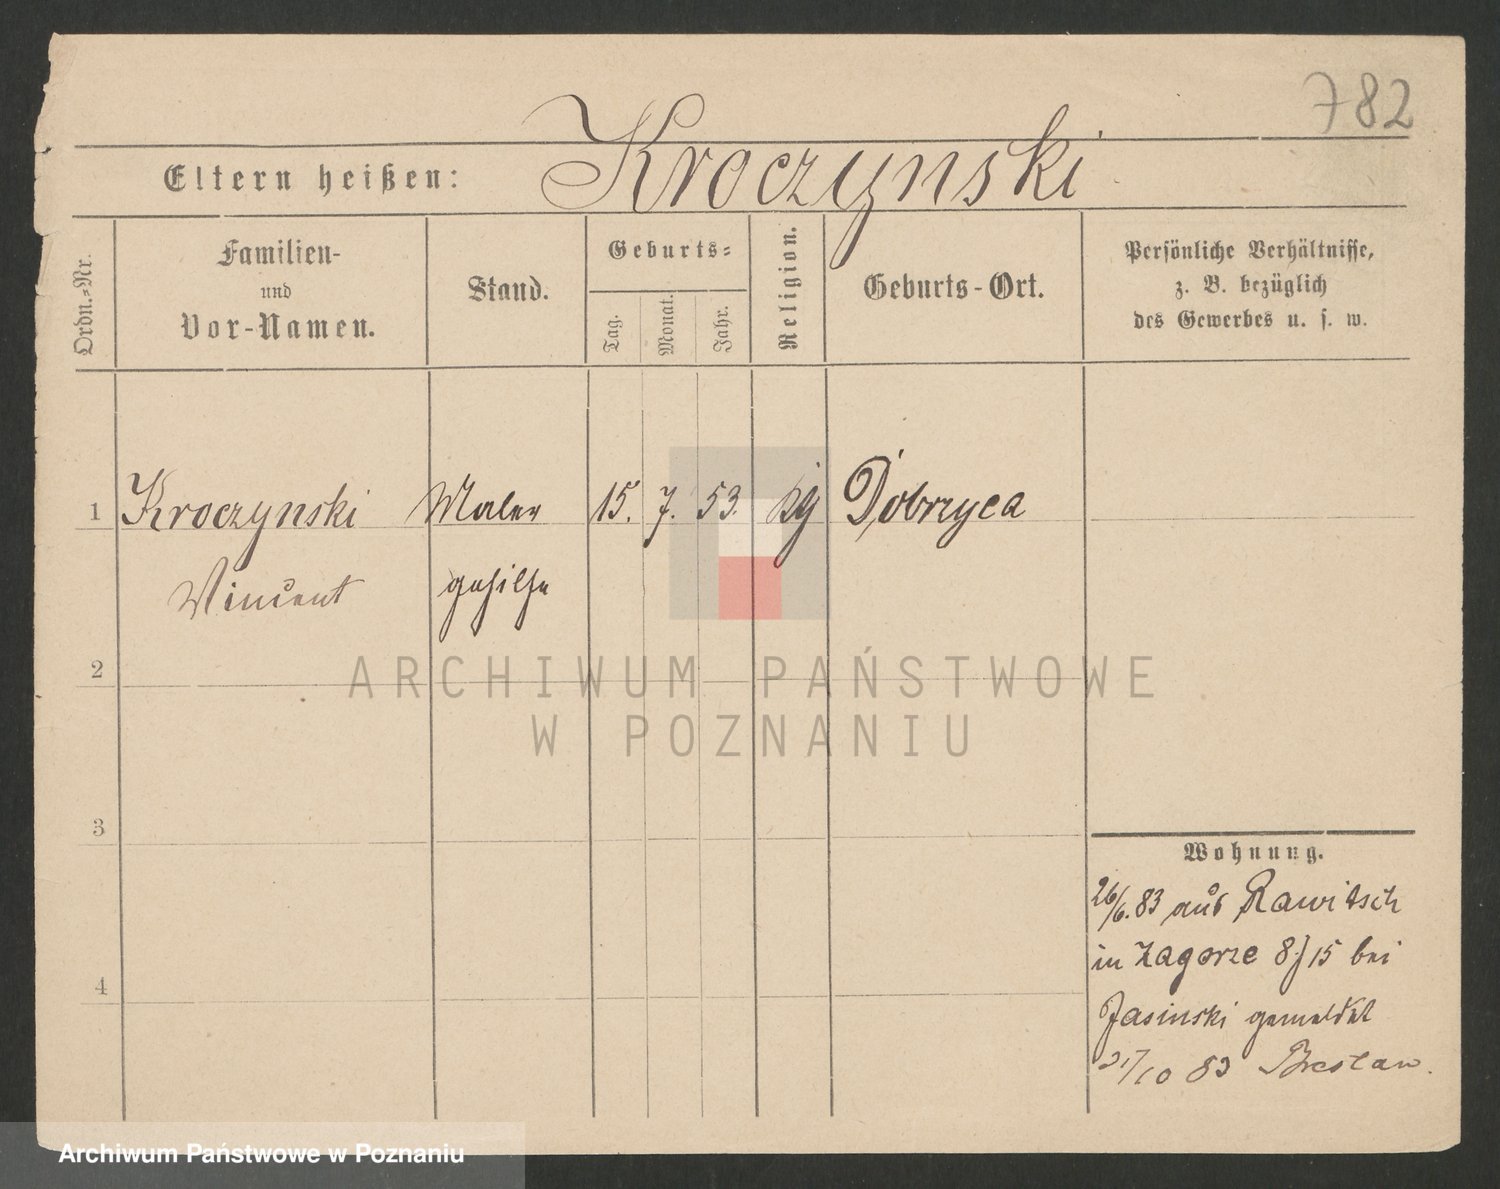 782
Kroczynski
Eltern heißen:
Ordn.-Nr.
Familien-
und
Vor-Namen.
Stand.
Geburts-
Tag.
Monat.
Jahr.
Religion.
Geburts-Ort.
Persönliche Verhältnisse,
z. B. bezüglich
des Gewerbes u. s. w.
1 Kroczynski Maler 15. 7. 53. kg Dobrzyca
Vincent gehilfe
2
ARCHIWUM PAŃSTWOWE
W POZNANIU
3
Wohnung.
26/6. 83 aus Rawitsch
in Zagorze 8/15 bei
4
Jasinski gemeldet
/10 83 Breslau.
Archiwum Państwowe w Poznaniu